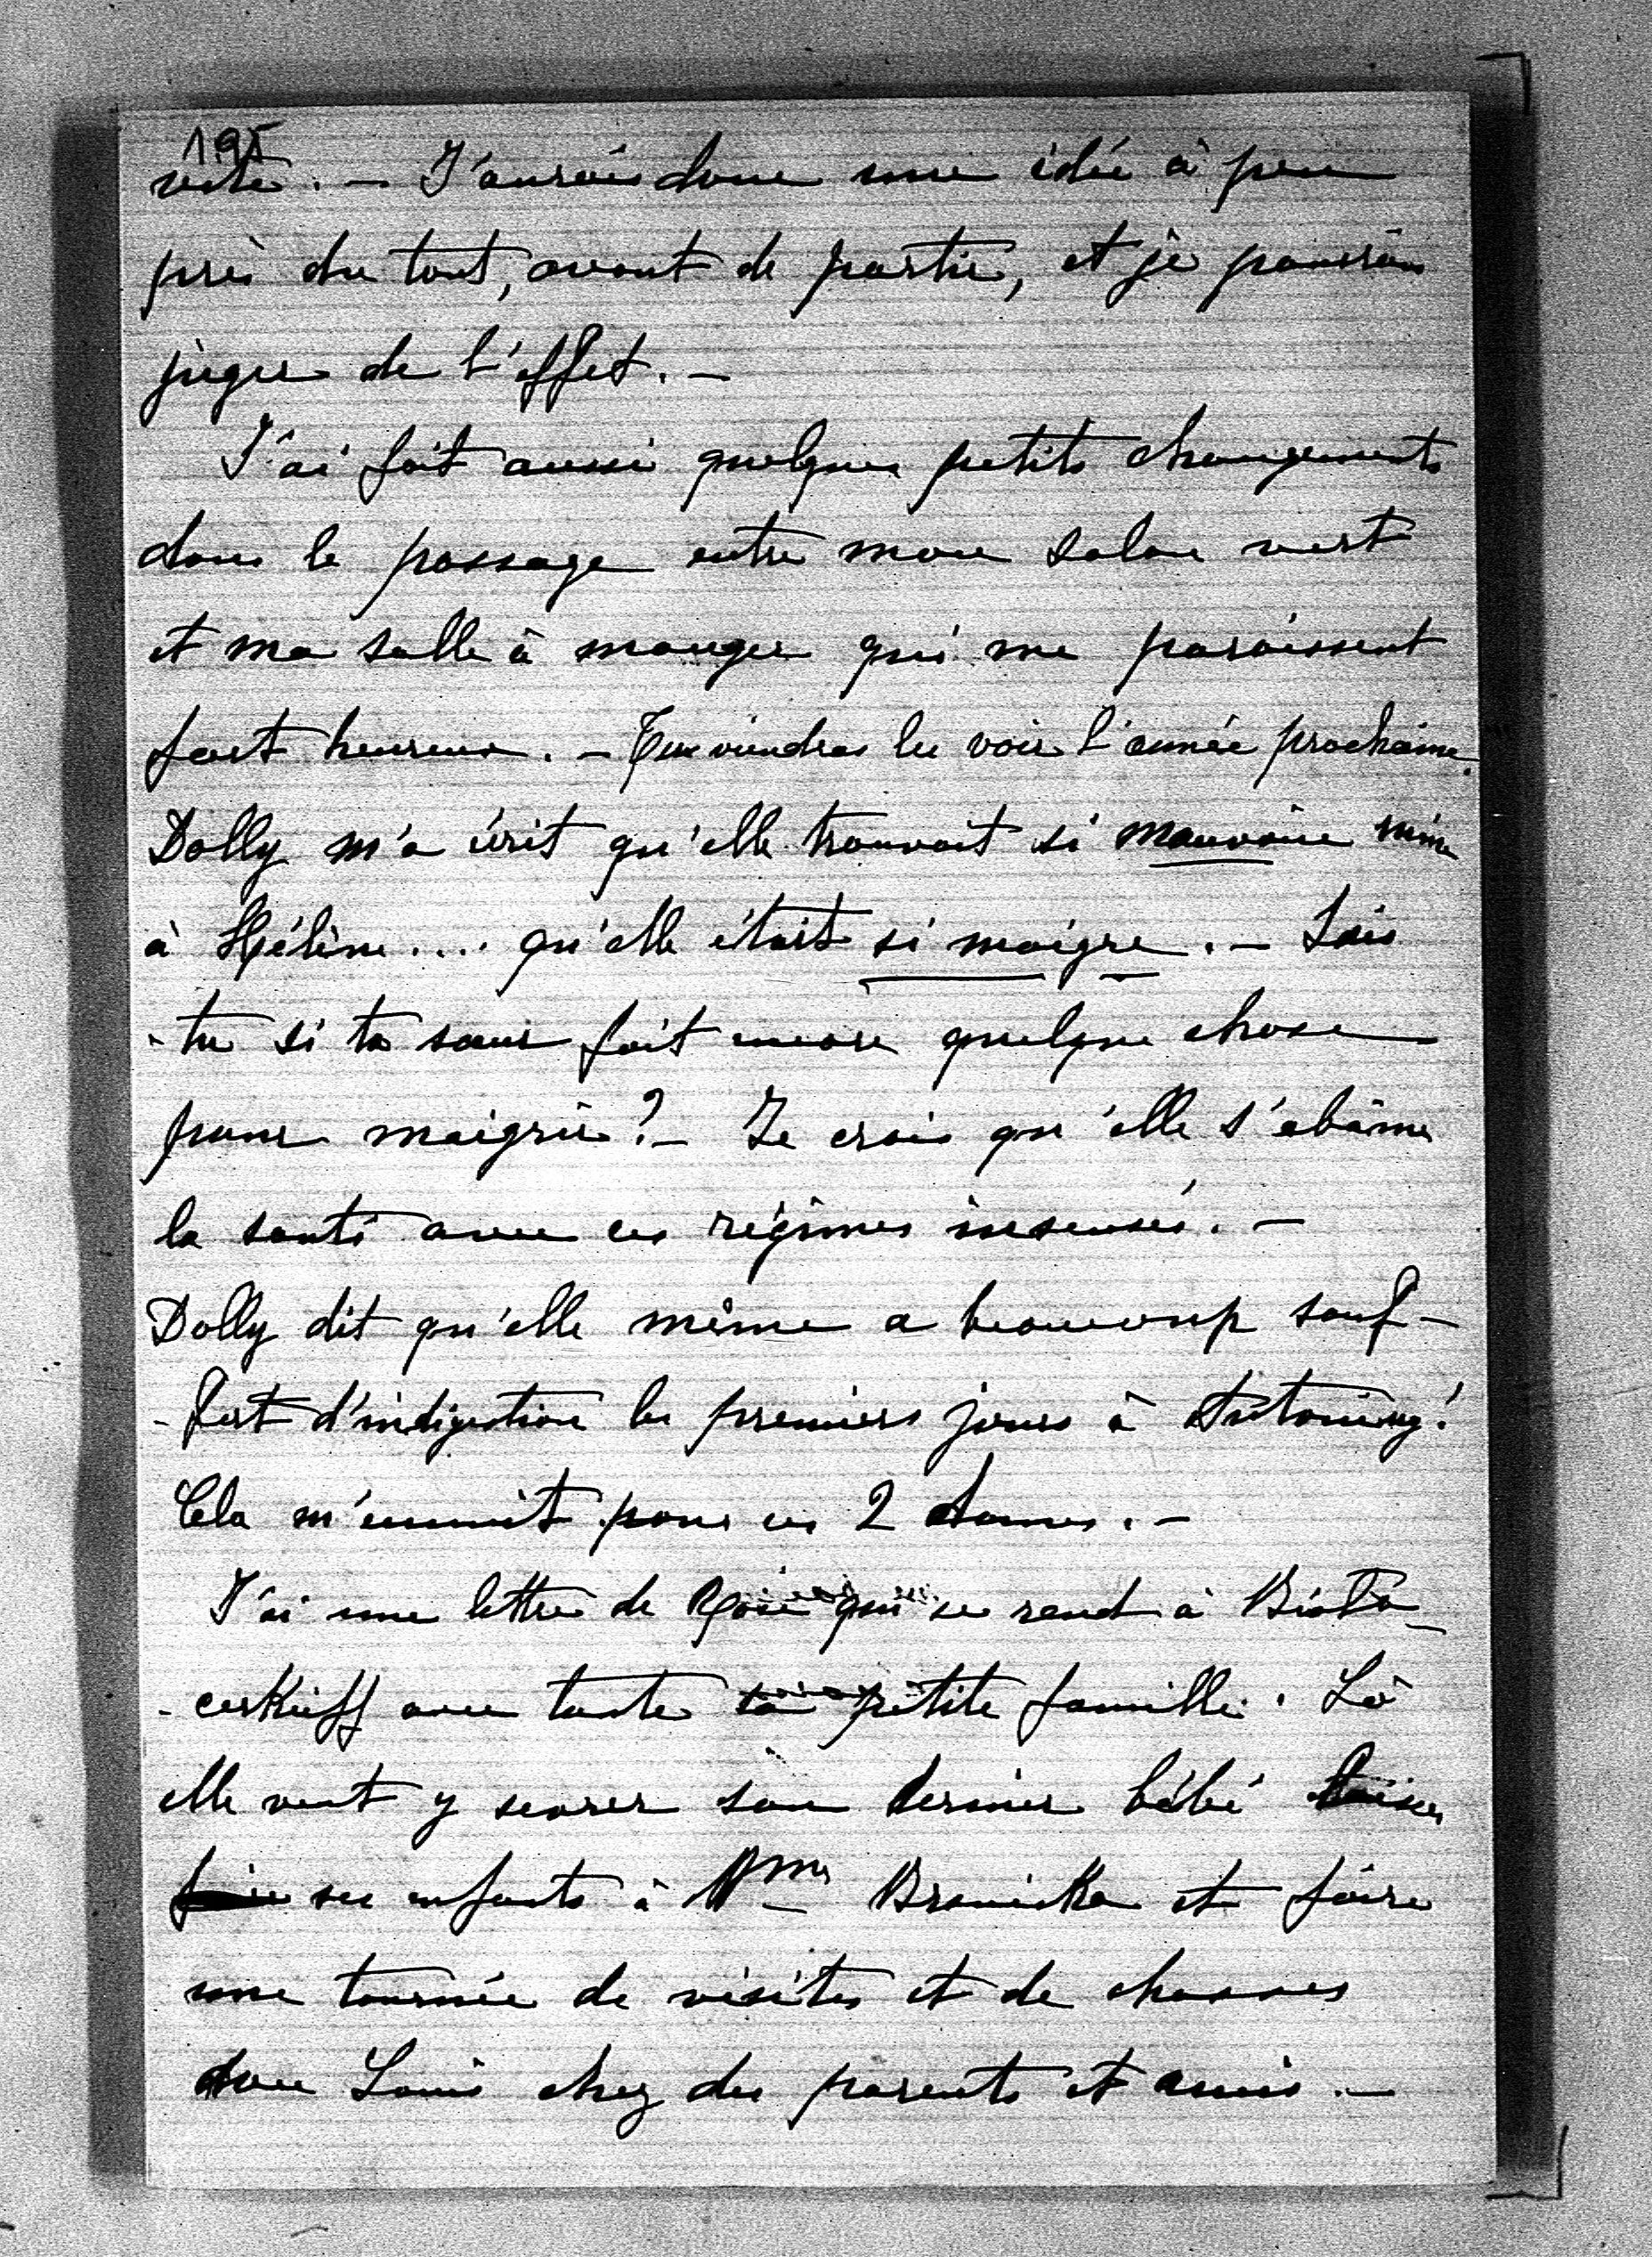 195
verte. — J'aurais donc une idée à peu
près du tout, avant de partir, et je pourrais
juger de l'effet. —
J'ai fait aussi quelques petits changements
dans le passage entre mon salon vert
et ma salle à manger qui me paraissent
fort heureux. — Tu viendras les voir l'année prochaine.
Dolly m'a écrit qu'elle trouvait si mauvaise mine
à Hélène.... qu'elle était si maigre. — Sais
-tu si ta sœur fait encore quelque chose
pour maigrir? — Je crois qu'elle s'abîme
la santé avec ces régimes insensés. —
Dolly dit qu'elle même a beaucoup souf-
-fert d'indigestion les premiers jours à Antoniny!
Cela m'ennuit pour ces 2 dames. —
J'ai une lettre de Rose qui se rend à Biała-
-cerkieff avec toute sa petite famille. Là
elle veut y sevrer son dernier bébé laisser
ses enfants à Mme Branicka et faire
une tournée de visites et de chasses
avec Louis chez des parents et amis. —